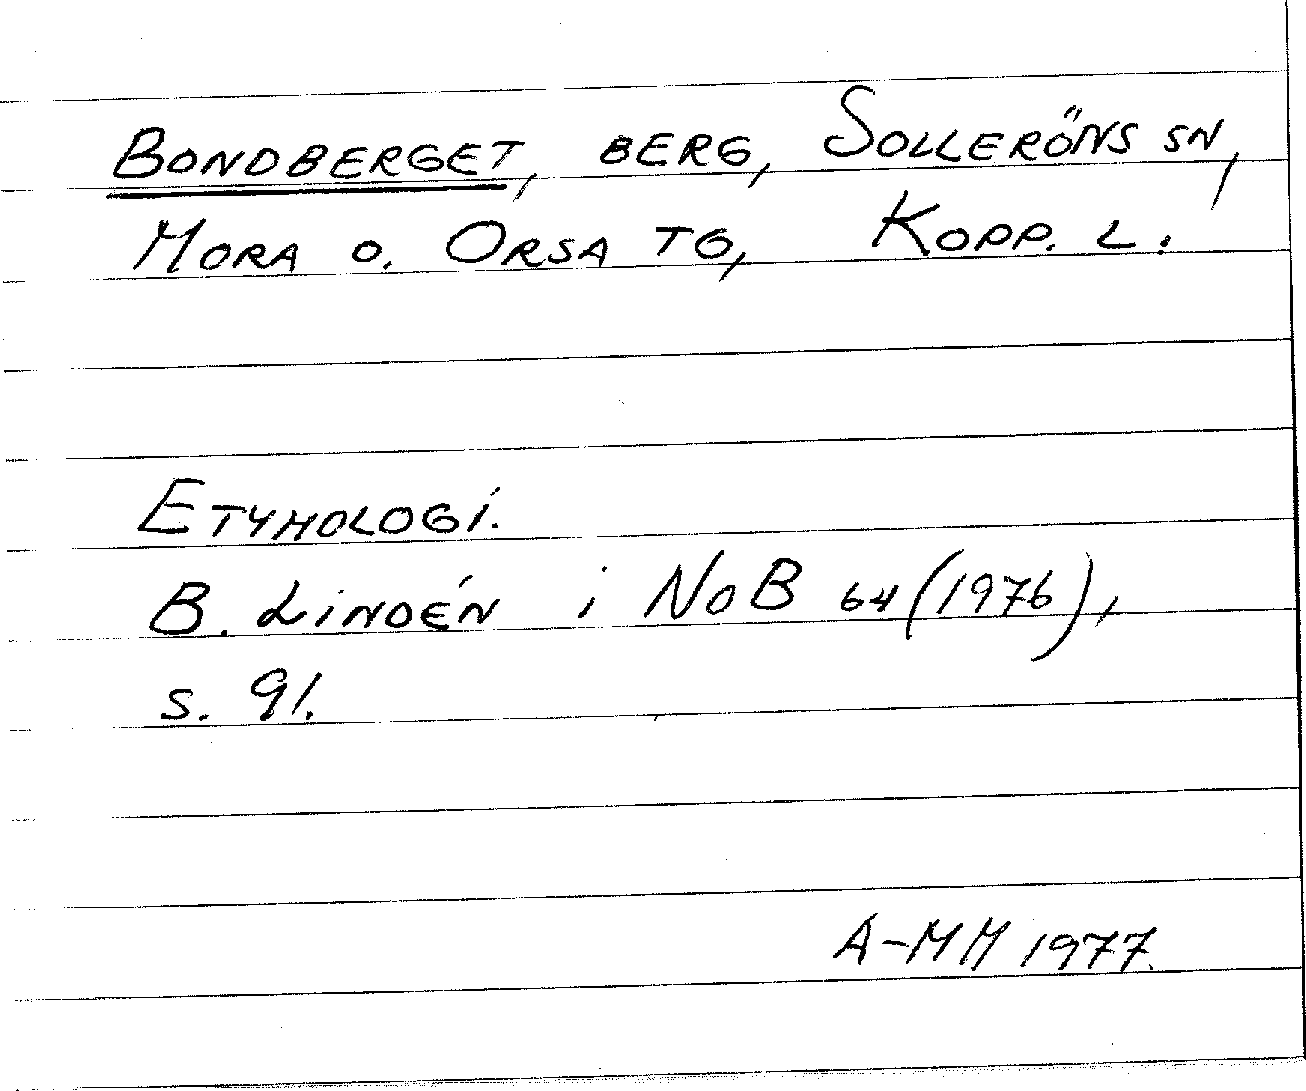 BONDBERGET, BERG, SOLLERÖNS SN,
MORA O. ORSA TG, KOPP. L.
ETYMOLOGI.
B. LINDÉN i NoB 64 (1976),
s. 91.
A-MM 1977.